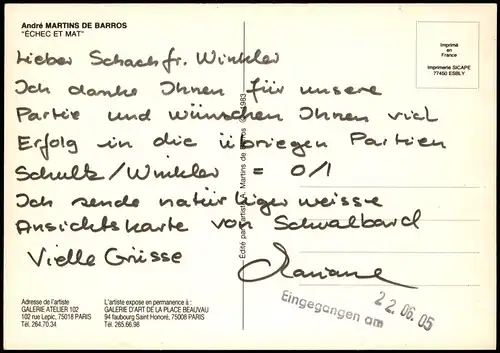 André MARTINS DE BARROS
"ÉCHEC ET MAT"
Imprimé
en
France
Imprimerie SICAPE
77450 ESBLY
Lieber Schachfr. Winkler
Ich danke Ihnen für unsere
Partie und wünschen Ihnen viel
Erfolg in die übriegen Partien
Schultz/Winkler = 0/1
Ich sende natürligerweisse
Ansichtskarte von Schwalbard
Vielle Grüsse
Mariane
Édité par l'artiste A. Martins de Barros © 1983
Adresse de l'artiste
GALERIE ATELIER 102
102 rue Lepic, 75018 PARIS
Tél. 264.70.34
L'artiste expose en permanence à :
GALERIE D'ART DE LA PLACE BEAUVAU
94 faubourg Saint Honoré, 75008 PARIS
Tél. 265.66.98
Eingegangen am 22. 06. 05